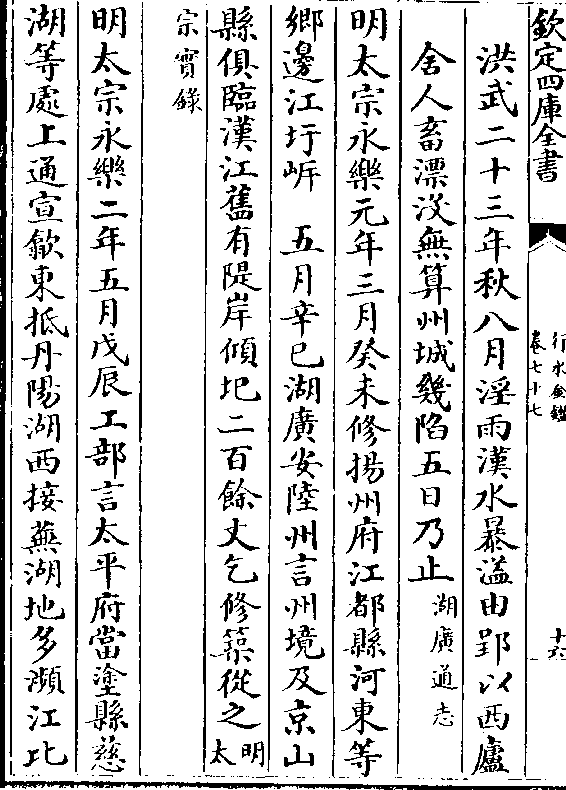 欽定四庫全書
行水金鑑
卷七十七
十六
洪武二十三年秋八月淫雨漢水暴溢由郢以西廬
舍人畜漂沒無算州城幾陷五日乃止湖廣通志
明太宗永樂元年三月癸未修揚州府江都縣河東等
鄉邊江圩岸 五月辛巳湖廣安陸州言州境及京山
縣俱臨漢江舊有隄岸傾圯二百餘丈乞修築從之明太
宗實錄
明太宗永樂二年五月戊辰工部言太平府當塗縣慈
湖等處上通宣歙東抵丹陽湖西接蕪湖地多瀕江比